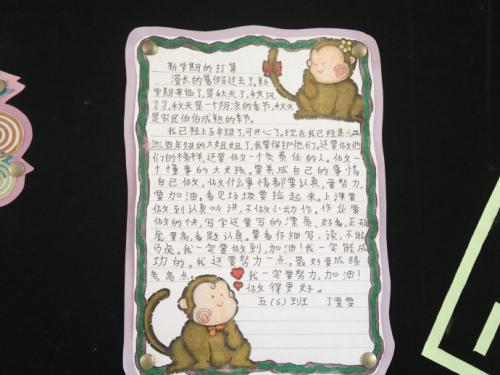 新学期的打算
漫长的暑假过去了。新
学期来临了,是秋天了,秋风
习习,秋天是一个阴凉的季节,秋天
是农民伯伯成熟的季节。
我已经上五年级了,可开心了。现在我已经是一二
三四年级的大姐姐了。我要保护他们,还要做他
们的榜样,还要做个负责任的人。做一
个懂事的大女孩。要养成自己的事情
自己做,做什么事情都要认真,要努力,
要加油。看见垃圾要捡起来。上课要
做到认真听讲,不做小动作。作业要
做的快,写字还要写的漂亮、好看,正确
度要高,看题认真。要看仔细写、读,不能
马虎。我一定要做到,加油!我一定能成
功的。我还要努力一点。最好要成绩
考高点。我一定要努力,加油!
做得更好。
五(6)班 丁雯雯